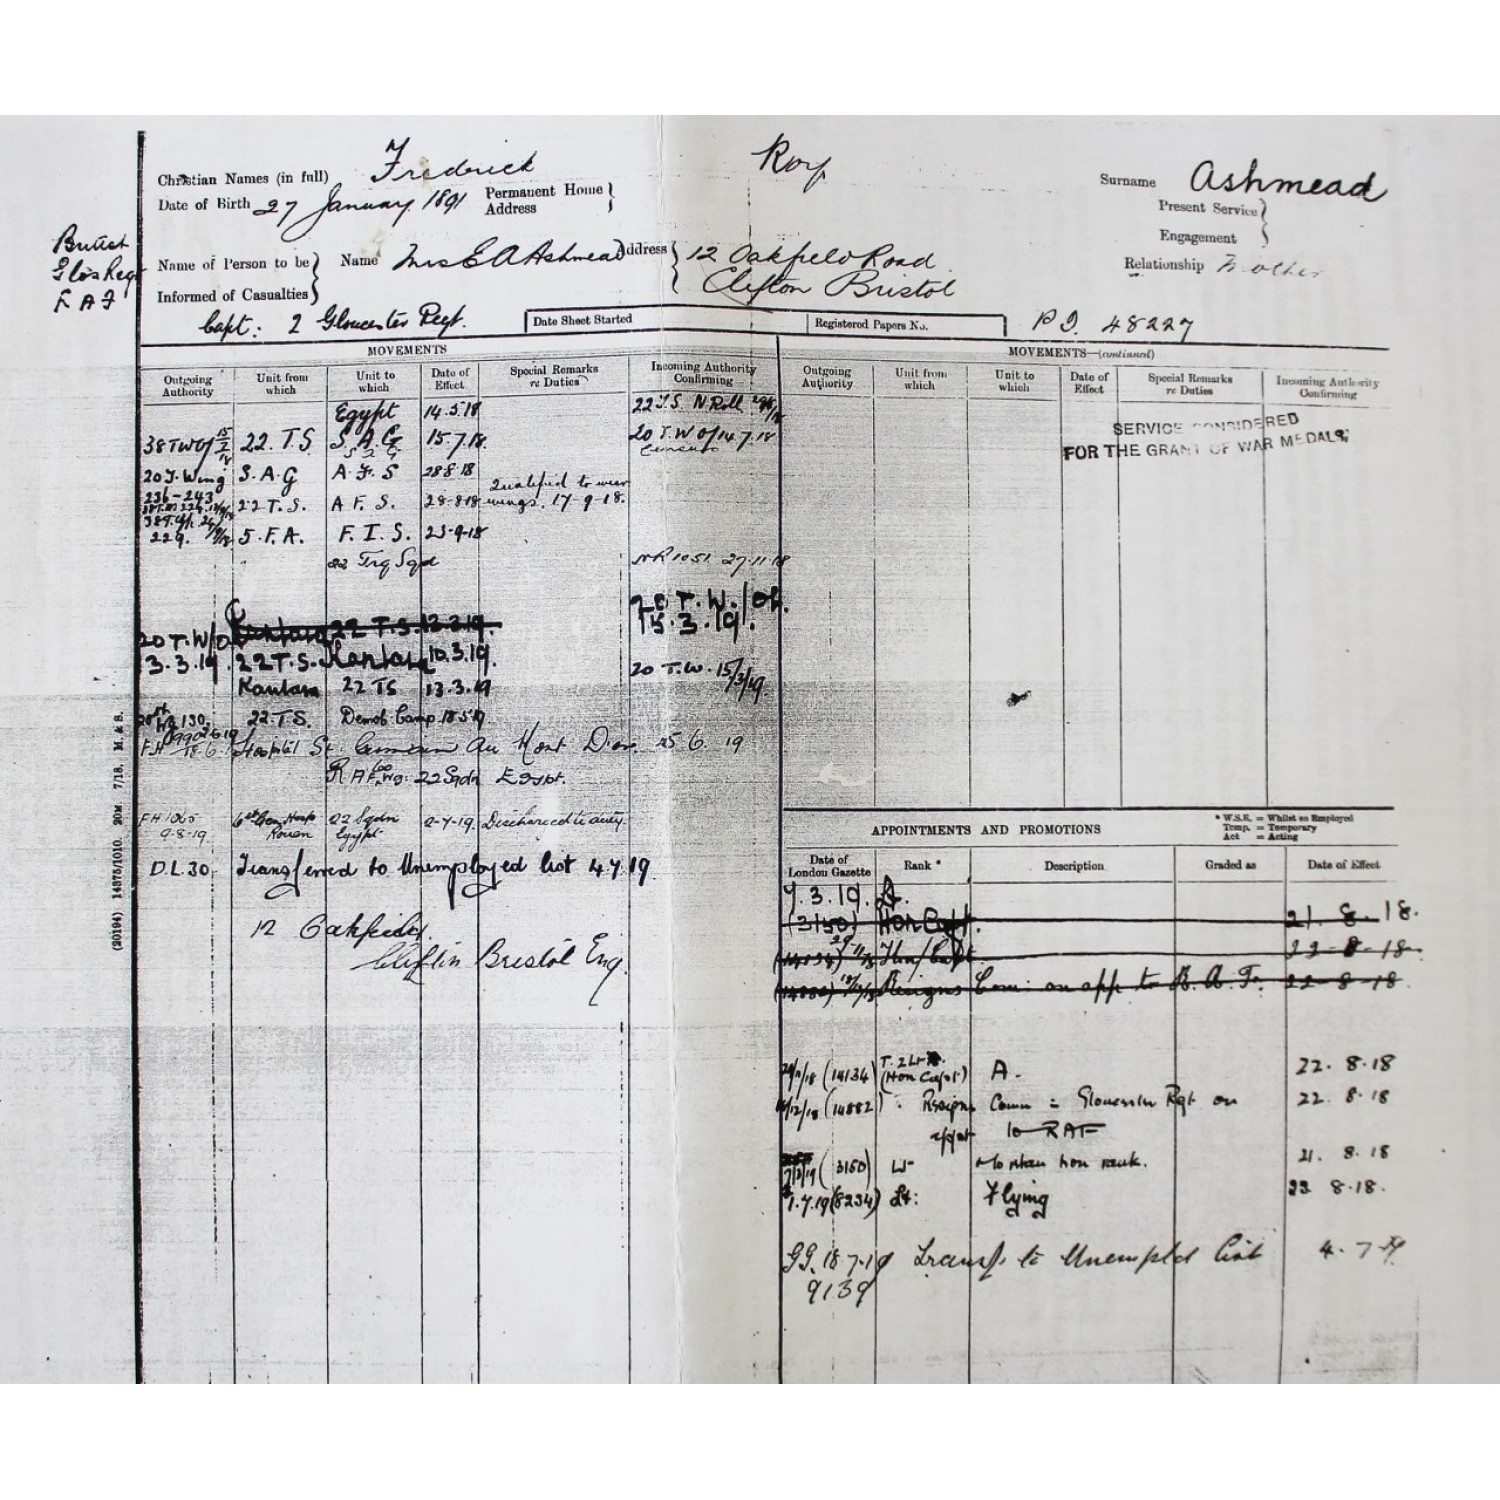 Christian Names (in full) Frederick Roy Surname Ashmead
Date of Birth 27 January 1891 Permanent Home Address } Present Service Engagement }
British
Glos Reg
R A F
Name of Person to be Informed of Casualties } Name Mrs E A Ashmead Address { 12 Oakfield Road Clifton Bristol Relationship Mother
Capt: 2 Gloucester Regt. Date Sheet Started Registered Papers No. 48227
MOVEMENTS
Outgoing Authority Unit from which Unit to which Date of Effect Special Remarks re Duties Incoming Authority Confirming
Egypt 14.5.18 22 T.S. N Roll
38 TW 22. T.S S.A.G 15.7.18. 20 T.W 14.7.18
20 T. Wing S.A.G A.F.S 28.8.18
236-243 22 T.S. A F. S. 28-8-18 Qualified to wear wings. 17-9-18.
229. 5. F.A. F. I. S. 23-9-18
22 Trg Sqd NR 1051 27.11.18
20 T.W/O Kantara 22 T.S. 12.3.19. 20 T.W./Of. 15.3.19.
3.3.19. 22 T.S. Kantara 10.3.19.
Kantara 22 TS 13.3.19 20 T.W. 15/3/19.
130. 22.T.S. Demob Camp 18.5.19
F.H Hospital 25 6. 19
22 Sqdn Egypt.
FH 1065 9-8-19 6th Gen Hosp Rouen 22 Sqdn Egypt 2-7-19. Discharged to duty.
D.L.30. Transferred to Unemployed list 4.7.19
12 Oakfield.
Clifton Bristol Eng.
(20194) 14875/1010. 20M 7/18. M. & S.
MOVEMENTS—(continued)
Outgoing Authority Unit from which Unit to which Date of Effect Special Remarks re Duties Incoming Authority Confirming
SERVICE CONSIDERED
FOR THE GRANT OF WAR MEDALS
APPOINTMENTS AND PROMOTIONS
* W.S.E. = Whilst so Employed
Temp. = Temporary
Act = Acting
Date of London Gazette Rank * Description Graded as Date of Effect
7.3.19. Lt.
(3150) Hon Capt. 21. 8. 18.
Hon/Capt. 22-8-18.
Resigns Com: on app to R.A.F. 22-8-18.
(14134) T. 2 Lt (Hon Capt) A. 22. 8.18
(14882) Resigns Comm = Gloucester Rgt on appt to RAF 22. 8.18
(3150) Lt hon rank. 21. 8.18
1.7.19 (8234) Lt: Flying 22 8.18.
18.7.19 Transf. to Unempld List 4.7.19
9139